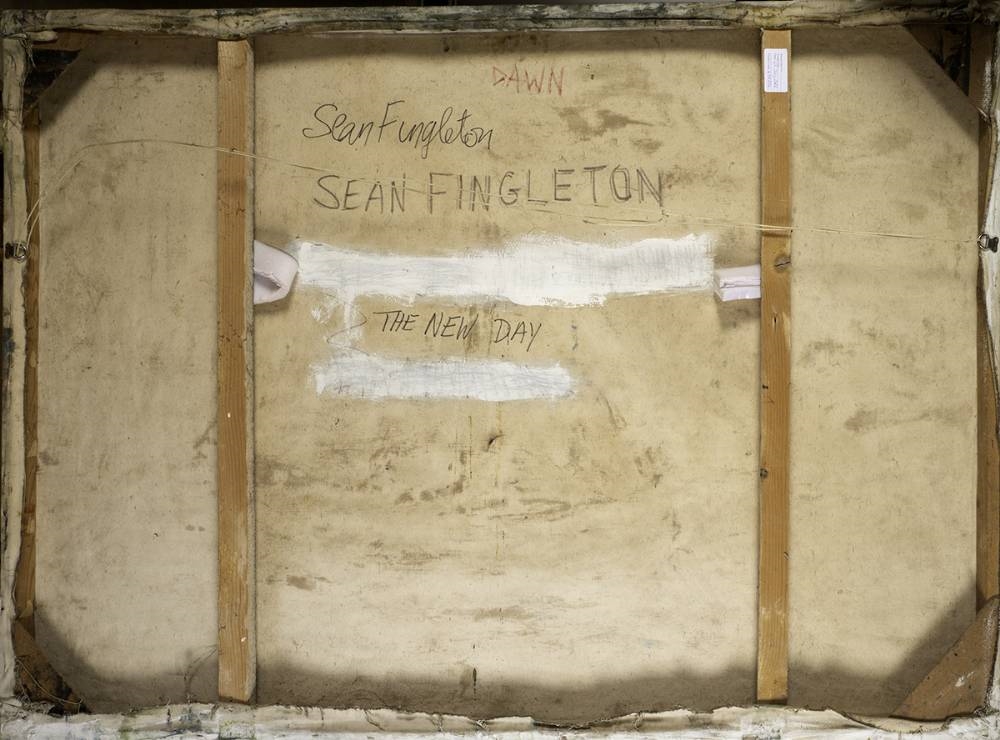 DAWN
Sean Fingleton
SEÁN FINGLETON
THE NEW DAY